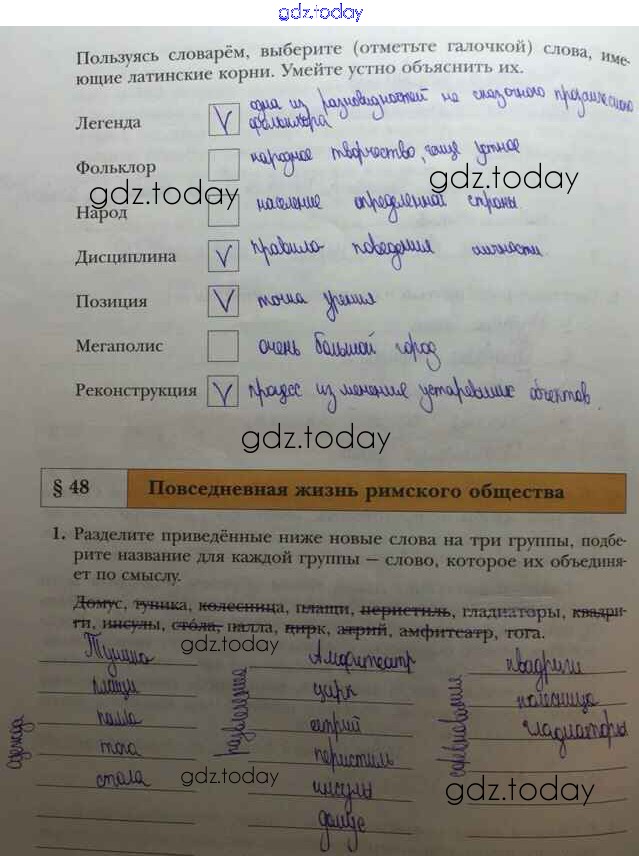 gdz.today
Пользуясь словарём, выберите (отметьте галочкой) слова, име-
ющие латинские корни. Умейте устно объяснить их.
Легенда V одна из разновидностей не сказочного прозаического
фольклора
Фольклор народное творчество, чаще устное
gdz.today gdz.today
Народ население определенной страны
Дисциплина V правило поведения личности
Позиция V точка зрения
Мегаполис очень большой город
Реконструкция V процесс изменения устаревших объектов.
gdz.today
§ 48 Повседневная жизнь римского общества
1. Разделите приведённые ниже новые слова на три группы, подбе-
рите название для каждой группы — слово, которое их объединя-
ет по смыслу.
Домус, туника, колесница, плащи, перистиль, гладиаторы, квадри-
ги, инсулы, стóла, палла, цирк, атрий, амфитеатр, тога.
gdz.today
одежда
Туника
плащи
палла
тога
стола
развлечение
Амфитеатр
цирк
атрий
перистиль
инсулы
домус
соревнования
квадриги
колесница
гладиаторы
gdz.today
gdz.today